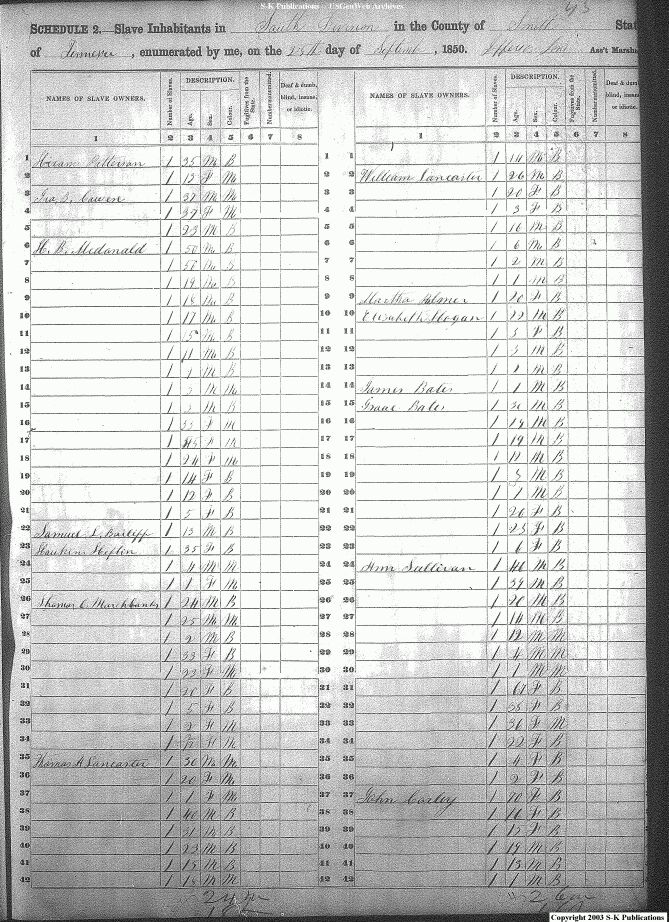 S-K Publications - USGenWeb Archives
SCHEDULE 2. Slave Inhabitants in South Division in the County of Smith State
of Tennessee, enumerated by me, on the 25th day of Septemb, 1850. Ass't Marsha
NAMES OF SLAVE OWNERS. Number of Slaves. DESCRIPTION. Age. Sex. Colour. Fugitives from the State. Number manumitted. Deaf & dumb, blind, insane, or idiotic.
1 2 3 4 5 6 7 8
1 Hiram Patterson 1 35 M B
2 1 12 F M
3 Ira B. Cowen 1 32 M M
4 1 37 F M
5 1 23 M B
6 H. B. McDonald 1 50 M B
7 1 50 M B
8 1 19 M B
9 1 18 M B
10 1 17 M B
11 1 15 M B
12 1 11 M B
13 1 M B
14 1 M M
15 1 M B
16 1 F M
17 1 45 F M
18 1 24 F M
19 1 14 F B
20 1 12 F B
21 1 5 F B
22 Samuel L. 1 13 M B
23 Hawkins Heflin 1 35 F B
24 1 4 M M
25 1 1 F M
26 Thomas C. Marchbanks 1 24 M B
27 1 25 M M
28 1 2 M B
29 1 33 F B
30 1 22 F M
31 1 20 F B
32 1 5 F B
33 1 2 F M
34 1 F M
35 Thomas H Lancaster 1 30 M M
36 1 20 F M
37 1 1 F M
38 1 40 M B
39 1 31 M B
40 1 23 M B
41 1 15 M B
42 1 18 M M
NAMES OF SLAVE OWNERS. Number of Slaves. DESCRIPTION. Age. Sex. Colour. Fugitives from the State. Number manumitted. Deaf & dumb, blind, insane, or idiotic.
1 2 3 4 5 6 7 8
1 1 14 M B
2 William Lancaster 1 26 M B
3 1 20 F B
4 1 3 F B
5 1 10 M B
6 1 6 M B
7 1 2 M B
8 1 1 M B
9 Martha 1 20 F B
10 Elizabeth Hogan 1 22 M B
11 1 5 F B
12 1 3 M B
13 1 M B
14 James Bates 1 1 M B
15 Isaac Bates 1 M B
16 1 19 M B
17 1 19 M B
18 1 12 M B
19 1 3 M B
20 1 1 M B
21 1 26 F B
22 1 23 F B
23 1 6 F B
24 Ann Sullivan 1 40 M B
25 1 39 M B
26 1 20 M B
27 1 14 M B
28 1 12 M M
29 1 4 M M
30 1 1 M M
31 1 F B
32 1 38 F B
33 1 30 F M
34 1 22 F B
35 1 4 F B
36 1 2 F B
37 John Corley 1 F B
38 1 16 F B
39 1 12 F B
40 1 M B
41 1 13 M B
42 1 1 M B
Copyright 2003 S-K Publications